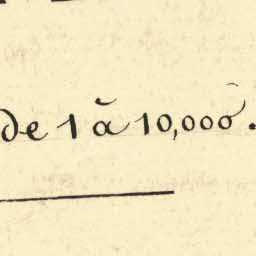 de 1 à 10,000.